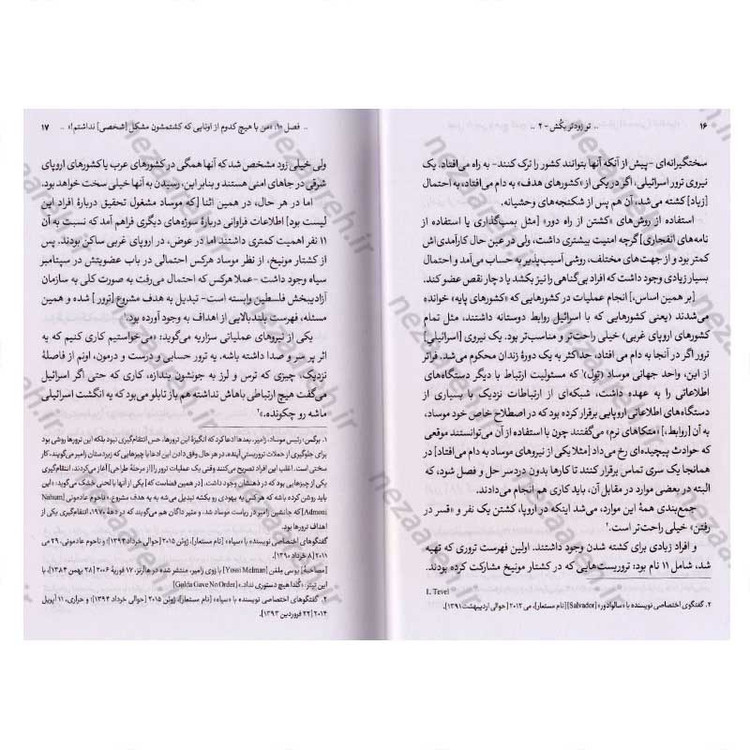 ۱۶
.. تو زودتر بکُش - ۲ ..
سختگیرانه‌ای -پیش از آنکه آنها بتوانند کشور را ترک کنند- به راه می‌افتاد. یک
نیروی ترور اسرائیلی، اگر در یکی از «کشورهای هدف» به دام می‌افتاد، به احتمال
[زیاد] کشته می‌شد، آن هم پس از شکنجه‌های وحشیانه.
استفاده از روش‌های «کشتن از راه دور» [مثل بمب‌گذاری یا استفاده از
نامه‌های انفجاری] گرچه امنیت بیشتری داشت، ولی در عین حال کارآمدی‌اش
کمتر بود و از جهت‌های مختلف، روشی آسیب‌پذیر به حساب می‌آمد و احتمال
بسیار زیادی وجود داشت که افراد بی‌گناهی را نیز بکشد یا دچار نقص عضو کند.
[بر همین اساس،] انجام عملیات در کشورهایی که «کشورهای پایه» خوانده
می‌شدند (یعنی کشورهایی که با اسرائیل روابط دوستانه داشتند، مثل تمام
کشورهای اروپای غربی) خیلی راحت‌تر و مناسب‌تر بود. یک نیروی [اسرائیلی]
ترور اگر در آنجا به دام می‌افتاد، حداکثر به یک دورهٔ زندان محکوم می‌شد. فراتر
از این، واحد جهانی موساد (تول)۱ که مسئولیت ارتباط با دیگر دستگاه‌های
اطلاعاتی را به عهده داشت، شبکه‌ای از ارتباطات نزدیک با بسیاری از
دستگاه‌های اطلاعاتی اروپایی برقرار کرده بود که در اصطلاح خاص خود موساد،
به آن [روابط،] «متکاهای نرم» می‌گفتند چون با استفاده از آن می‌توانستند موقعی
که حوادث پیچیده‌ای رخ می‌داد [مثلا یکی از نیروهای موساد به دام می‌افتاد] در
همانجا یک سری تماس برقرار کنند تا کارها بدون دردسر حل و فصل شود، که
البته در بعضی موارد در مقابل آن، باید کاری هم انجام می‌دادند.
جمع‌بندی همهٔ این موارد، می‌شد اینکه در اروپا، کشتن یک نفر و «قسر در
رفتن» خیلی راحت‌تر است.۲
و افراد زیادی برای کشته شدن وجود داشتند. اولین فهرست تروری که تهیه
شد، شامل ۱۱ نام بود: تروریست‌هایی که در کشتار مونیخ مشارکت کرده بودند.
1. Tevel
۲. گفتگوی اختصاصی نویسنده با «سالوادور» [Salvador] [نام مستعار]، می ۲۰۱۲ [حوالی اردیبهشت ۱۳۹۱].
.. فصل ۱۰، «من با هیچ کدوم از اونایی که کشتمشون مشکل [شخصی] نداشتم!» ..
۱۷
ولی خیلی زود مشخص شد که آنها همگی در کشورهای عرب یا کشورهای اروپای
شرقی در جاهای امنی هستند و بنابر این، رسیدن به آنها خیلی سخت خواهد بود.
اما در هر حال، در همین اثنا [که موساد مشغول تحقیق دربارهٔ افراد این
لیست بود] اطلاعات فراوانی دربارهٔ سوژه‌های دیگری فراهم آمد که نسبت به آن
۱۱ نفر اهمیت کمتری داشتند اما در عوض، در اروپای غربی ساکن بودند. پس
از کشتار مونیخ، از نظر موساد هرکس احتمالی در باب عضویتش در سپتامبر
سیاه وجود داشت -عملا هرکس که احتمال می‌رفت به صورت کلی به سازمان
آزادیبخش فلسطین وابسته است- تبدیل به هدف مشروع [ترور] شده و همین
مسئله، فهرست بلندبالایی از اهداف به وجود آورده بود.
یکی از نیروهای عملیاتی سزاریه می‌گوید: «می‌خواستیم کاری کنیم که یه
اثر پر سر و صدا داشته باشه، یه ترور حسابی و درست و درمون، اونم از فاصلهٔ
نزدیک، چیزی که ترس و لرز به جونشون بندازه، کاری که حتی اگر اسرائیل
می‌گفت هیچ ارتباطی باهاش نداشته هم باز تابلو می‌بود که یه انگشت اسرائیلی
ماشه رو چکونده.»۲
۱. برگمن: رئیس موساد، زامیر، بعدها ادعا کرد که انگیزهٔ این ترورها، حس انتقام‌گیری نبود بلکه این ترورها روشی بود
برای جلوگیری از حملات تروریستی آینده. هر چند در هر حال وفق دادن این ادعا با حرف‌هایی که زیردستان زامیر می‌گویند، کار
سختی است. اغلب این افراد تصریح می‌کنند وقتی یک عملیات ترور را [از مرحلهٔ طراحی] آغاز می‌کردند، انتقام‌گیری
یکی از چیزهایی بود که در ذهنشان وجود داشت. [در همین فضاست که] یکی از آنها با لحنی خشک می‌گوید: «ما
باید روشن کرده باشیم که هر کس یه یهودی رو بکشه تبدیل می‌شه به یه هدف مشروع.» ناحوم عادمونی [Nahum
Admoni] که جانشین زامیر در ریاست موساد شد، و منیر داگان هم می‌گویند که در دههٔ ۱۹۷۰، انتقام‌گیری یکی از
اهداف ترورها بود.
گفتگوهای اختصاصی نویسنده با «سیاه» [نام مستعار]، ژوئن ۲۰۱۵ [حوالی خرداد ۱۳۹۴]؛ و ناحوم عادمونی، ۲۹ می
۲۰۱۱ [۸ خرداد ۱۳۹۰].
[مصاحبهٔ] یوسی ملمن [Yossi Melman] با زوی زامیر، منتشر شده در هاآرتز، ۱۷ فوریهٔ ۲۰۰۶ [۲۸ بهمن ۱۳۸۴]، با
این تیتر: «گلدا هیچ دستوری نداد.» [Golda Gave No Order]
۲. گفتگوهای اختصاصی نویسنده با «سیاه» [نام مستعار]، ژوئن ۲۰۱۵ [حوالی خرداد ۱۳۹۴]؛ و حراری، ۱۱ آوریل
۲۰۱۴ [۲۲ فروردین ۱۳۹۳].
nezaareh.ir